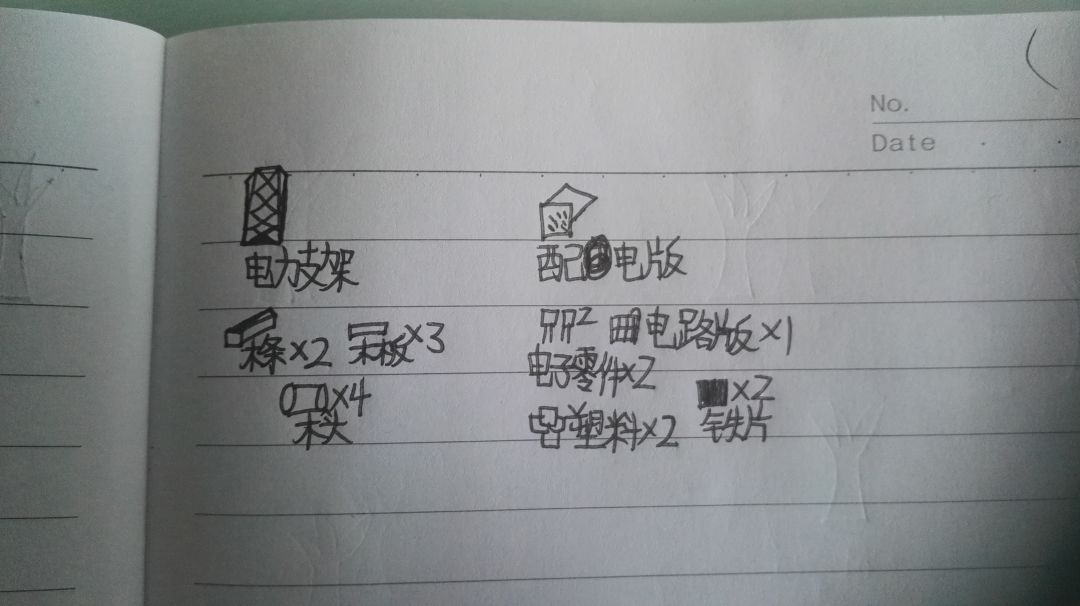 No.
Date
电力支架
配电版
木条×2 木板×3
电路版×1
电子零件×2
×4
木头
×2
塑料×2
铁片